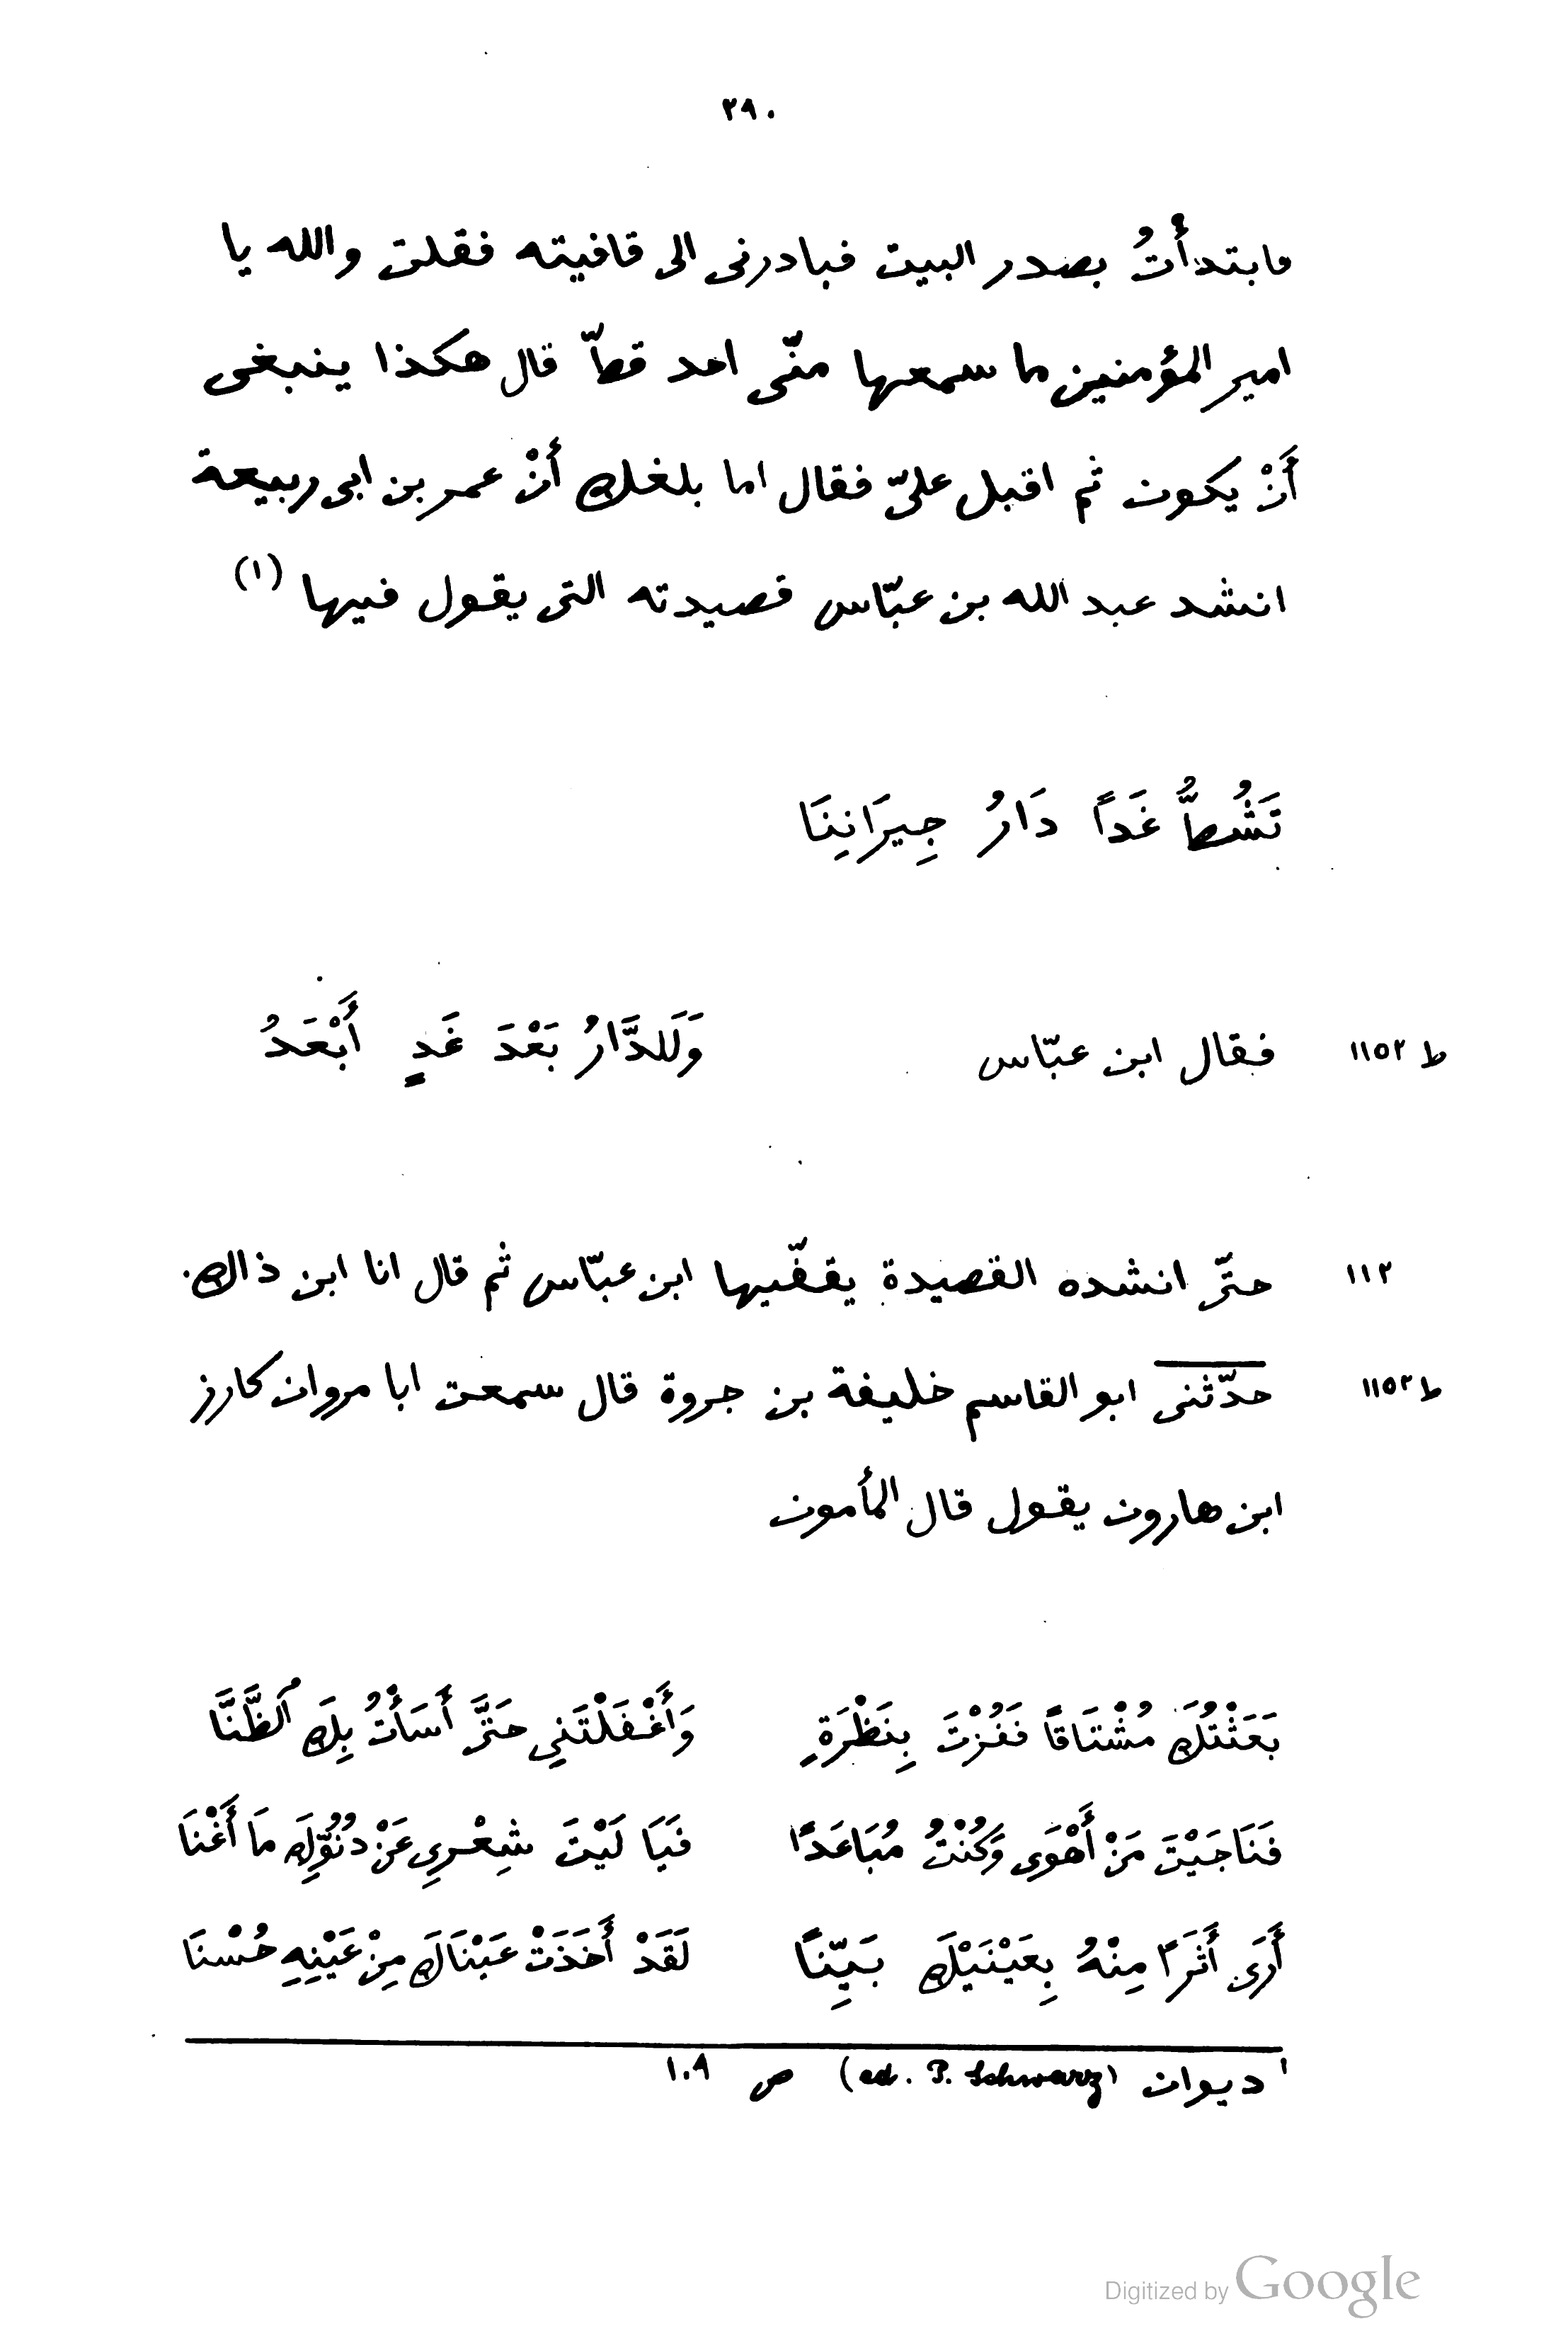 ٢٩٠
فابتدأتُ بصدر البيت فبادرنى الى قافيته فقلت والله يا
امير المؤمنين ما سمعها منّى احد قطّ قال هكذا ينبغى
أَنْ يكون ثم اقبل علىّ فقال اما بلغك أنْ عمر بن ابى ربيعة
انشد عبد الله بن عبّاس قصيدته التى يقول فيها (١)
تَشُطُّ غَداً دَارُ جِيرَانِنَا
ط ١١٥٢ فقال ابن عبّاس وَلَلدَّارُ بَعْدَ غَدٍ أَبْعَدُ
١١٢ حتّى انشده القصيدة يقفّيها ابن عبّاس ثم قال انا ابن ذاك.
ط ١١٥٢ حدّثنى ابو القاسم خليفة بن جروة قال سمعت ابا مروان كارز
ابن هارون يقول قال المأمون
بَعَثْتُكَ مُشْتَاقاً فَفُزْتَ بِنَظْرَةٍ وَأَغْفَلْتَنِي حَتَّى أَسَأْتُ بِكَ ٱلظَّنَّا
فَنَاجَيْتَ مَنْ أَهْوَى وَكُنْتُ مُبَاعَدًا فَيَا لَيْتَ شِعْرِي عَنْ دُنُوِّكَ مَا أَغْنَا
أَرَى أَثَرًا مِنْهُ بِعَيْنَيْكَ بَيِّنًا لَقَدْ أَخَذَتْ عَيْنَاكَ مِنْ عَيْنِهِ حُسْنَا
١ ديوان (ed. P. Schwarz) ص ١٠٩
Digitized by Google